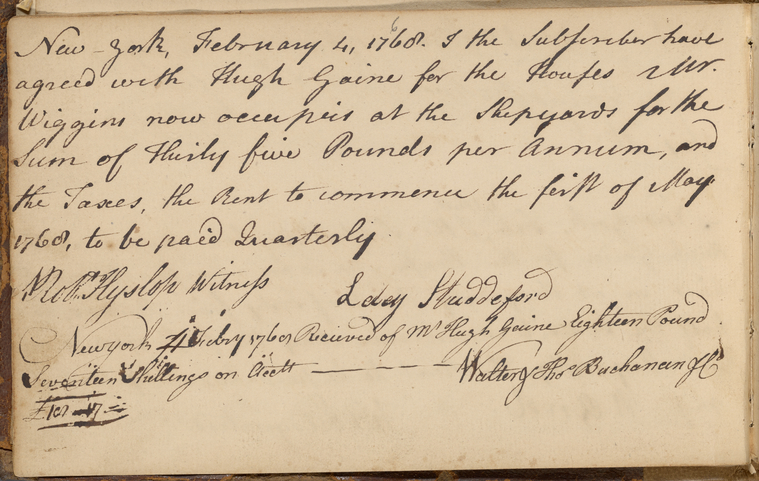 New-York, February 4, 1768. I the Subscriber have
agreed with Hugh Gaine for the Houses Mr.
Wiggins now occupies at the Shipyards for the
Sum of Thirty five Pounds per Annum, and
the Taxes, the Rent to commence the first of May
1768, to be paid Quarterly
Robt. Hyslop Witness Lday Studdeford
New york 4 Febry 1768 Recieved of Mr Hugh Gaine Eighteen Pound
Seventeen Shillings on Acctt
Walter & Thos Buchanan & Co
£18-17-